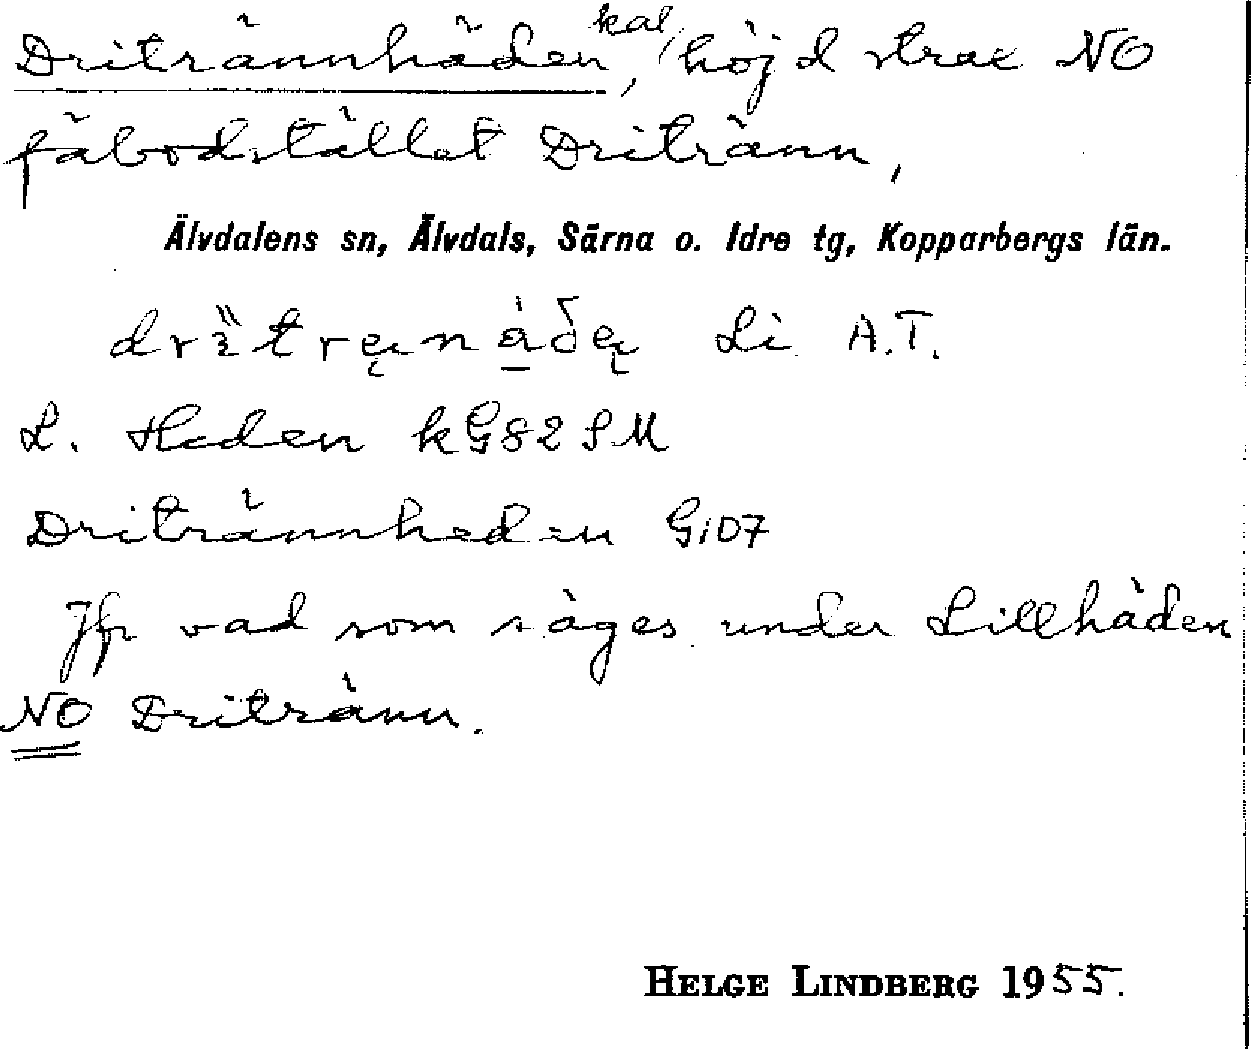 Dritrännhäden, kal höjd strax NO
fäbodstället Dritränn,
Älvdalens sn, Älvdals, Särna o. Idre tg, Kopparbergs län.
Li A.T.
L. Heden kG82 SM
Dritrännheden GiD7
Jfr vad som säges under Lillhäden
NO Dritränn.
HELGE LINDBERG 1955.